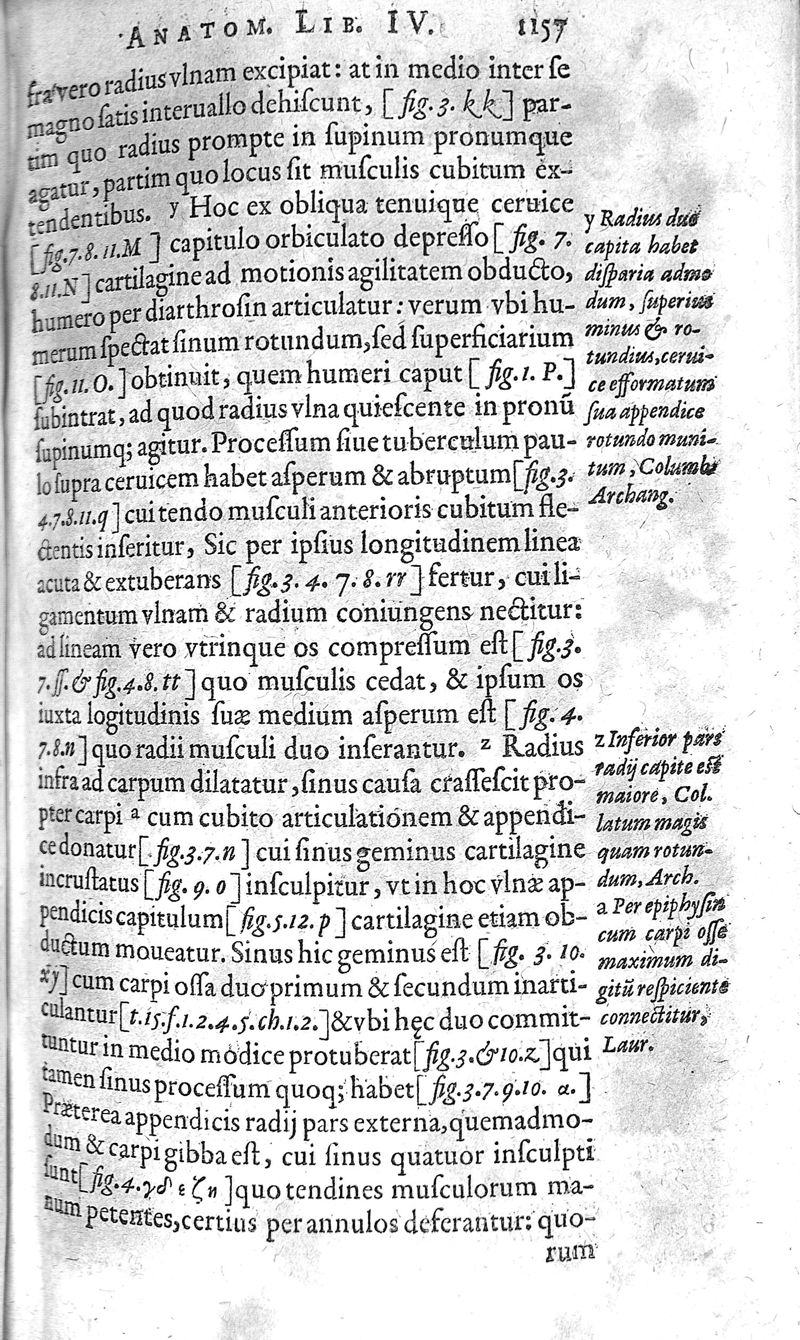 ANATOM. LIB. IV. 1157
fra vero radius vlnam excipiat: at in medio inter ſe
magno ſatis interuallo dehiſcunt, [fig. 3. k k] par-
tim quo radius prompte in ſupinum pronumque
agatur, partim quo locus ſit muſculis cubitum ex-
tendentibus. y Hoc ex obliqua tenuique ceruice
[fig. 7. 8. 11. M] capitulo orbiculato depreſſo [fig. 7.
8. 11. N] cartilagine ad motionis agilitatem obducto,
humero per diarthroſin articulatur: verum vbi hu-
merum ſpectat ſinum rotundum, ſed ſuperficiarium
[fig. 11. O.] obtinuit, quem humeri caput [fig. 1. P.]
ſubintrat, ad quod radius vlna quieſcente in pronū
ſupinumq; agitur. Proceſſum ſiue tuberculum pau-
lo ſupra ceruicem habet aſperum & abruptum [fig. 3.
4. 7. 8. 11. q] cui tendo muſculi anterioris cubitum fle-
ctentis inſeritur, Sic per ipſius longitudinem linea
acuta & extuberans [fig. 3. 4. 7. 8. rr] fertur, cui li-
gamentum vlnam & radium coniungens nectitur:
ad lineam vero vtrinque os compreſſum eſt [fig. 3.
7. ſſ. & fig. 4. 8. tt] quo muſculis cedat, & ipſum os
iuxta logitudinis ſuæ medium aſperum eſt [fig. 4.
7. 8. n] quo radii muſculi duo inſerantur. z Radius
infra ad carpum dilatatur, ſinus cauſa craſſeſcit pro-
pter carpi a cum cubito articulationem & appendi-
ce donatur [fig. 3. 7. n] cui ſinus geminus cartilagine
incruſtatus [fig. 9. o] inſculpitur, vt in hoc vlnæ ap-
pendicis capitulum [fig. 5. 12. p] cartilagine etiam ob-
ductum moueatur. Sinus hic geminus eſt [fig. 3. 10.
xy] cum carpi oſſa duo primum & ſecundum inarti-
culantur [t. 15. f. 1. 2. 4. 5. ch. 1. 2.] & vbi hęc duo commit-
tuntur in medio modice protuberat [fig. 3. & 10. z] qui
tamen ſinus proceſſum quoq; habet [fig. 3. 7. 9. 10. α.]
Præterea appendicis radij pars externa, quemadmo-
dum & carpi gibba eſt, cui ſinus quatuor inſculpti
ſunt [fig. 4. γ δ ε ζ η] quo tendines muſculorum ma-
num petentes, certius per annulos deferantur: quo-
rum
y Radius duo
capita habet
diſparia admo
dum, ſuperius
minus & ro-
tundius, cerui-
ce efformatum
ſua appendice
rotundo muni-
tum, Columb.
Archang.
z Inferior pars
radij capite eſt
maiore, Col.
latum magis
quam rotun-
dum, Arch.
a Per epiphyſin
cum carpi oſſe
maximum di-
gitū reſpiciente
connectitur,
Laur.